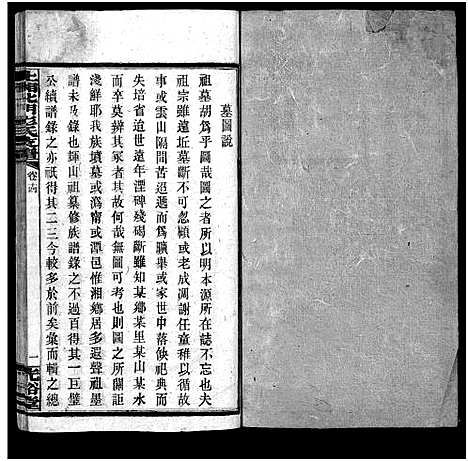 墓圖說
祖墓胡爲乎圖哉圖之者所以明本源所在誌不忘也夫
祖宗雖遠坵墓斷不可忽顧或老成凋謝任童稚以循故
事或雲山隔間苦迢遞而不躬親或家世中落俟祀典而
失培省迨世遠年湮碑殘碣斷雖知某鄉某里某山某水
而卒莫辨其冢者其故何哉無圖可考也則圖之所關詎
淺鮮耶我族墳墓或潙甯或潭邑惟湘鄉居多遐聲祖墨
譜未及錄也輝山祖纂修族譜錄之不過百得一巨璧
公續譜錄之亦祇得其二三今較多於前矣彙而輯之總
卷十四
一
光裕堂